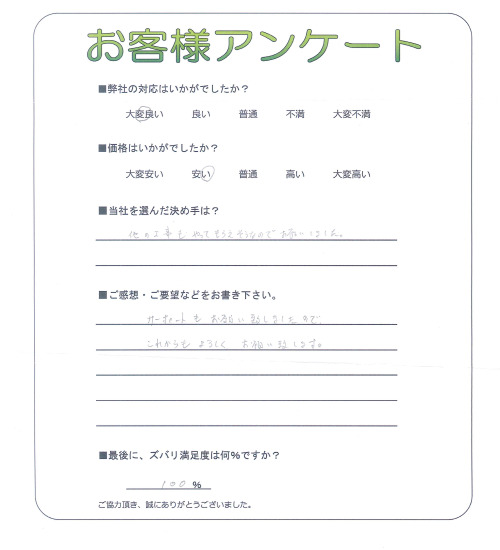 お客様アンケート
■弊社の対応はいかがでしたか？
大変良い 良い 普通 不満 大変不満
■価格はいかがでしたか？
大変安い 安い 普通 高い 大変高い
■当社を選んだ決め手は？
他の工事もやってもらえそうなのでお願いしました。
■ご感想・ご要望などをお書き下さい。
カーポートもお願い致しましたので、
これからもよろしくお願い致します。
■最後に、ズバリ満足度は何％ですか？
100％
ご協力頂き、誠にありがとうございました。